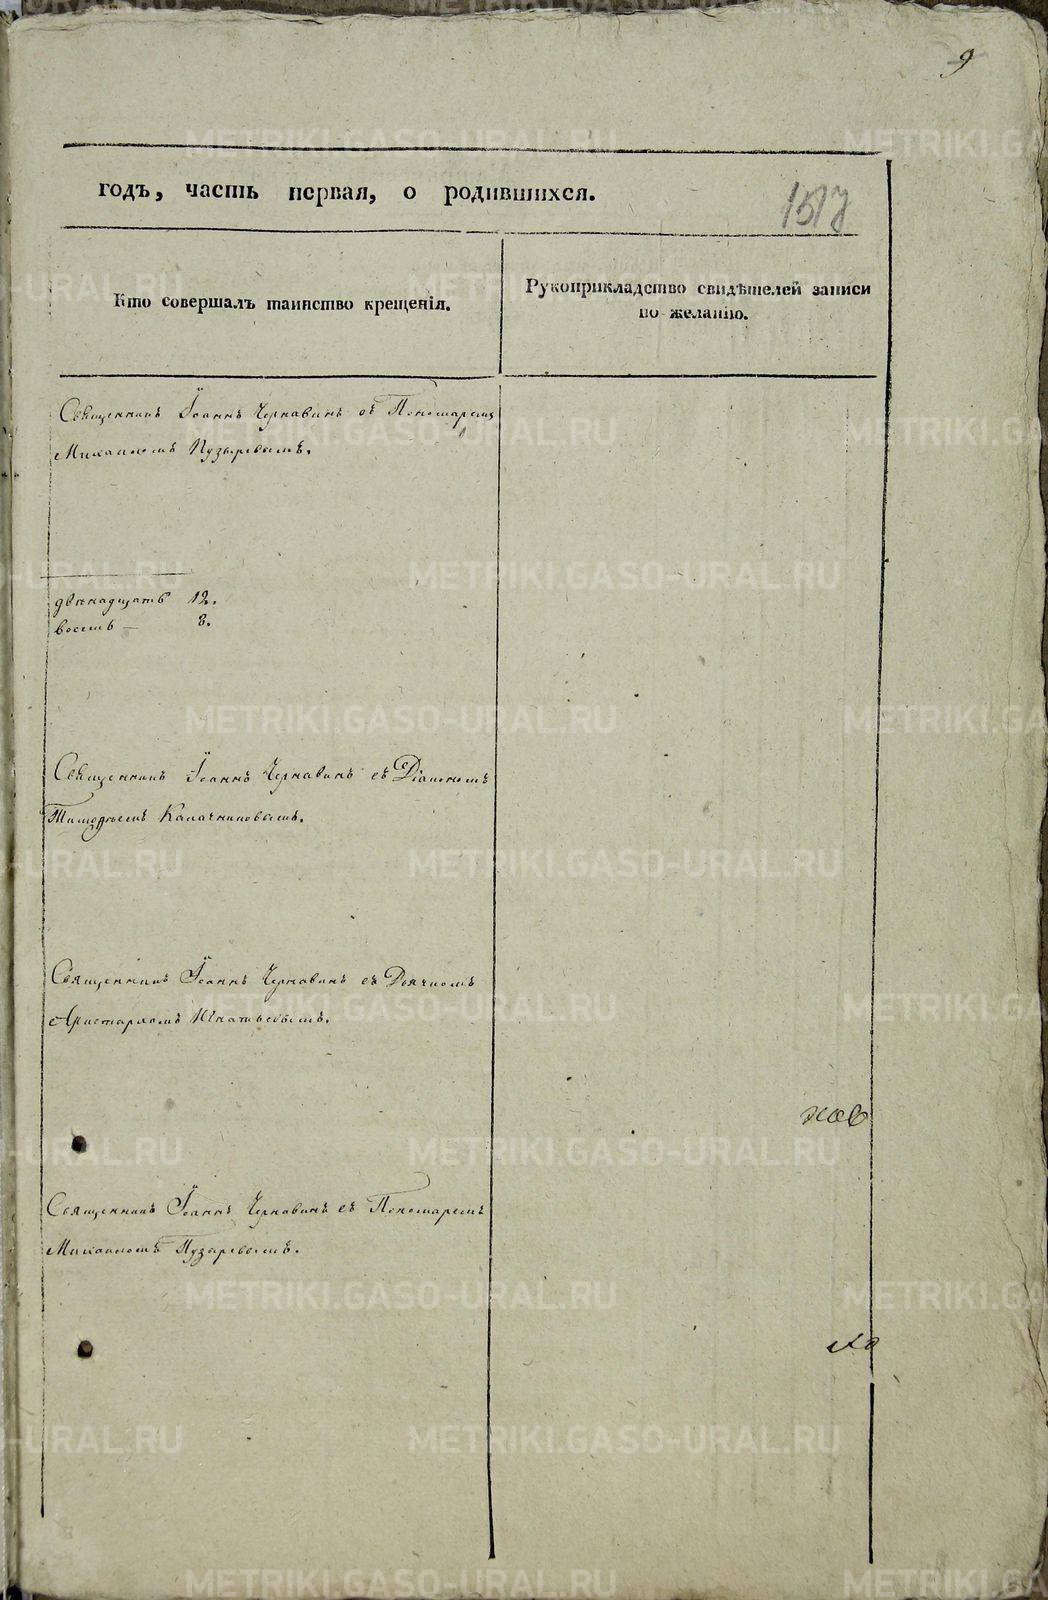 9
годъ, часть первая, о родившихся.
Кто совершалъ таинство крещенія.
Рукоприкладство свидѣтелей записи
по желанію.
Священникъ Іоаннъ Чернавинъ съ Пономаремъ
Михаиломъ Пузыревымъ.
двѣнадцать 12.
восемь — 8.
Священникъ Іоаннъ Чернавинъ съ Діакономъ
Тимофѣемъ Калачниковымъ.
Священникъ Іоаннъ Чернавинъ съ Дьячкомъ
Аристархомъ Игнатьевымъ.
Священникъ Іоаннъ Чернавинъ съ Пономаремъ
Михаиломъ Пузыревымъ.
METRIKI.GASO-URAL.RU